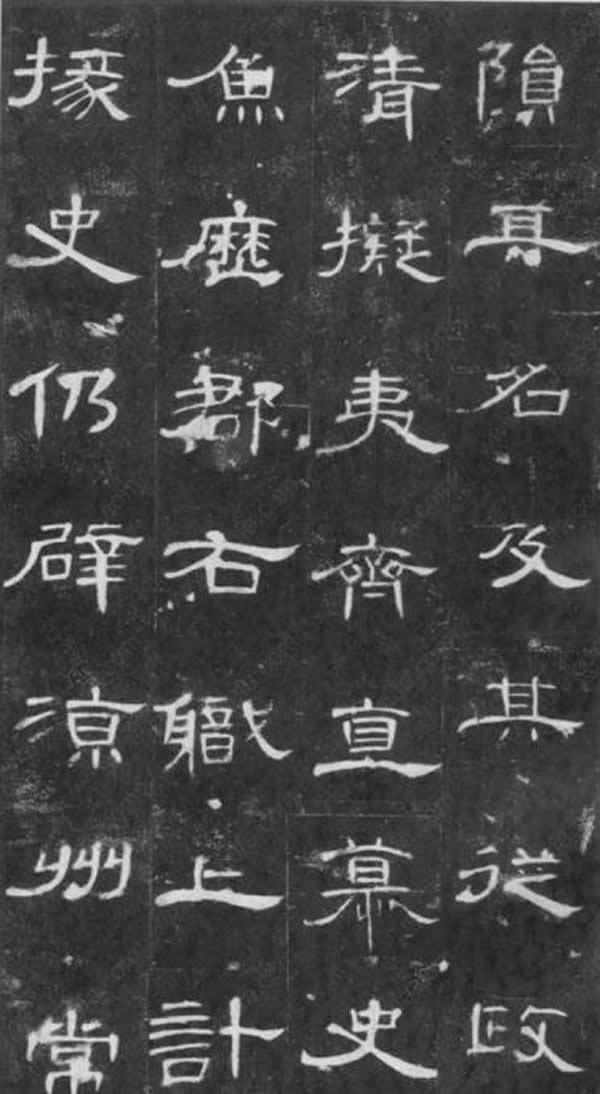 隕其名及其從政
清擬夷齊直慕史
魚歷郡右職上計
掾史仍辟涼州常